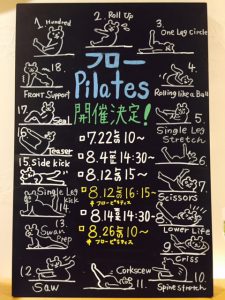 1. Hundred
2. Roll Up
3. One Leg Circle
フロー
Pilates
開催決定!
4. Rolling like a Ball
5. Single Leg Stretch
6.
7. Scissors
8. Lower Lift
9. Criss
10. Spine Stretch
11. Corkscrew
12. Saw
13. Swan Prep
14. Single Leg Kick
15. Side kick
16. Teaser
17. Seal
18. Front Support
□ 7.22 10~
□ 8.4 14:30~
□ 8.12 15~
□ 8.12 16:15~
フローピラティス
□ 8.14 14:30~
□ 8.26 10~
フローピラティス